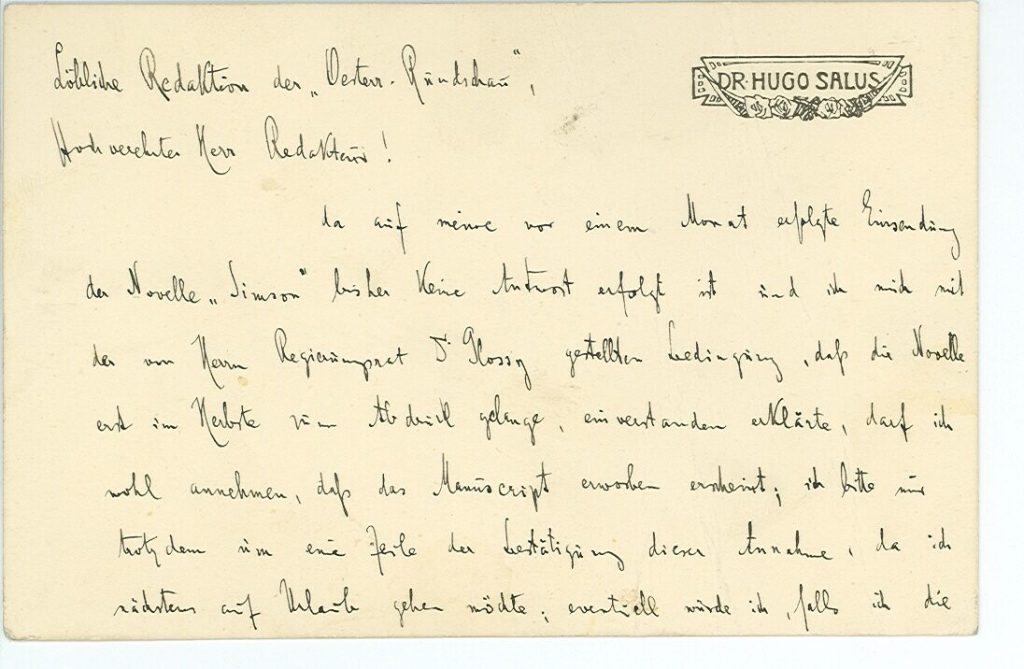 DR. HUGO SALUS
Löbliche Redaktion der „Oesterr. Rundschau“,
Hochverehrter Herr Redakteur!
da auf meine vor einem Monat erfolgte Einsendung
der Novelle „Simson“ bisher keine Antwort erfolgt ist und ich mich mit
der von Herrn Regierungsrat Dr Glossy gestellten Bedingung, daß die Novelle
erst im Herbste zum Abdruck gelange, einverstanden erklärte, darf ich
wohl annehmen, daß das Manuscript erworben erscheint; ich bitte nur
trotzdem um eine Zeile der Bestätigung dieser Annahme, da ich
nächstens auf Urlaub gehen möchte; eventuell würde ich, falls ich die